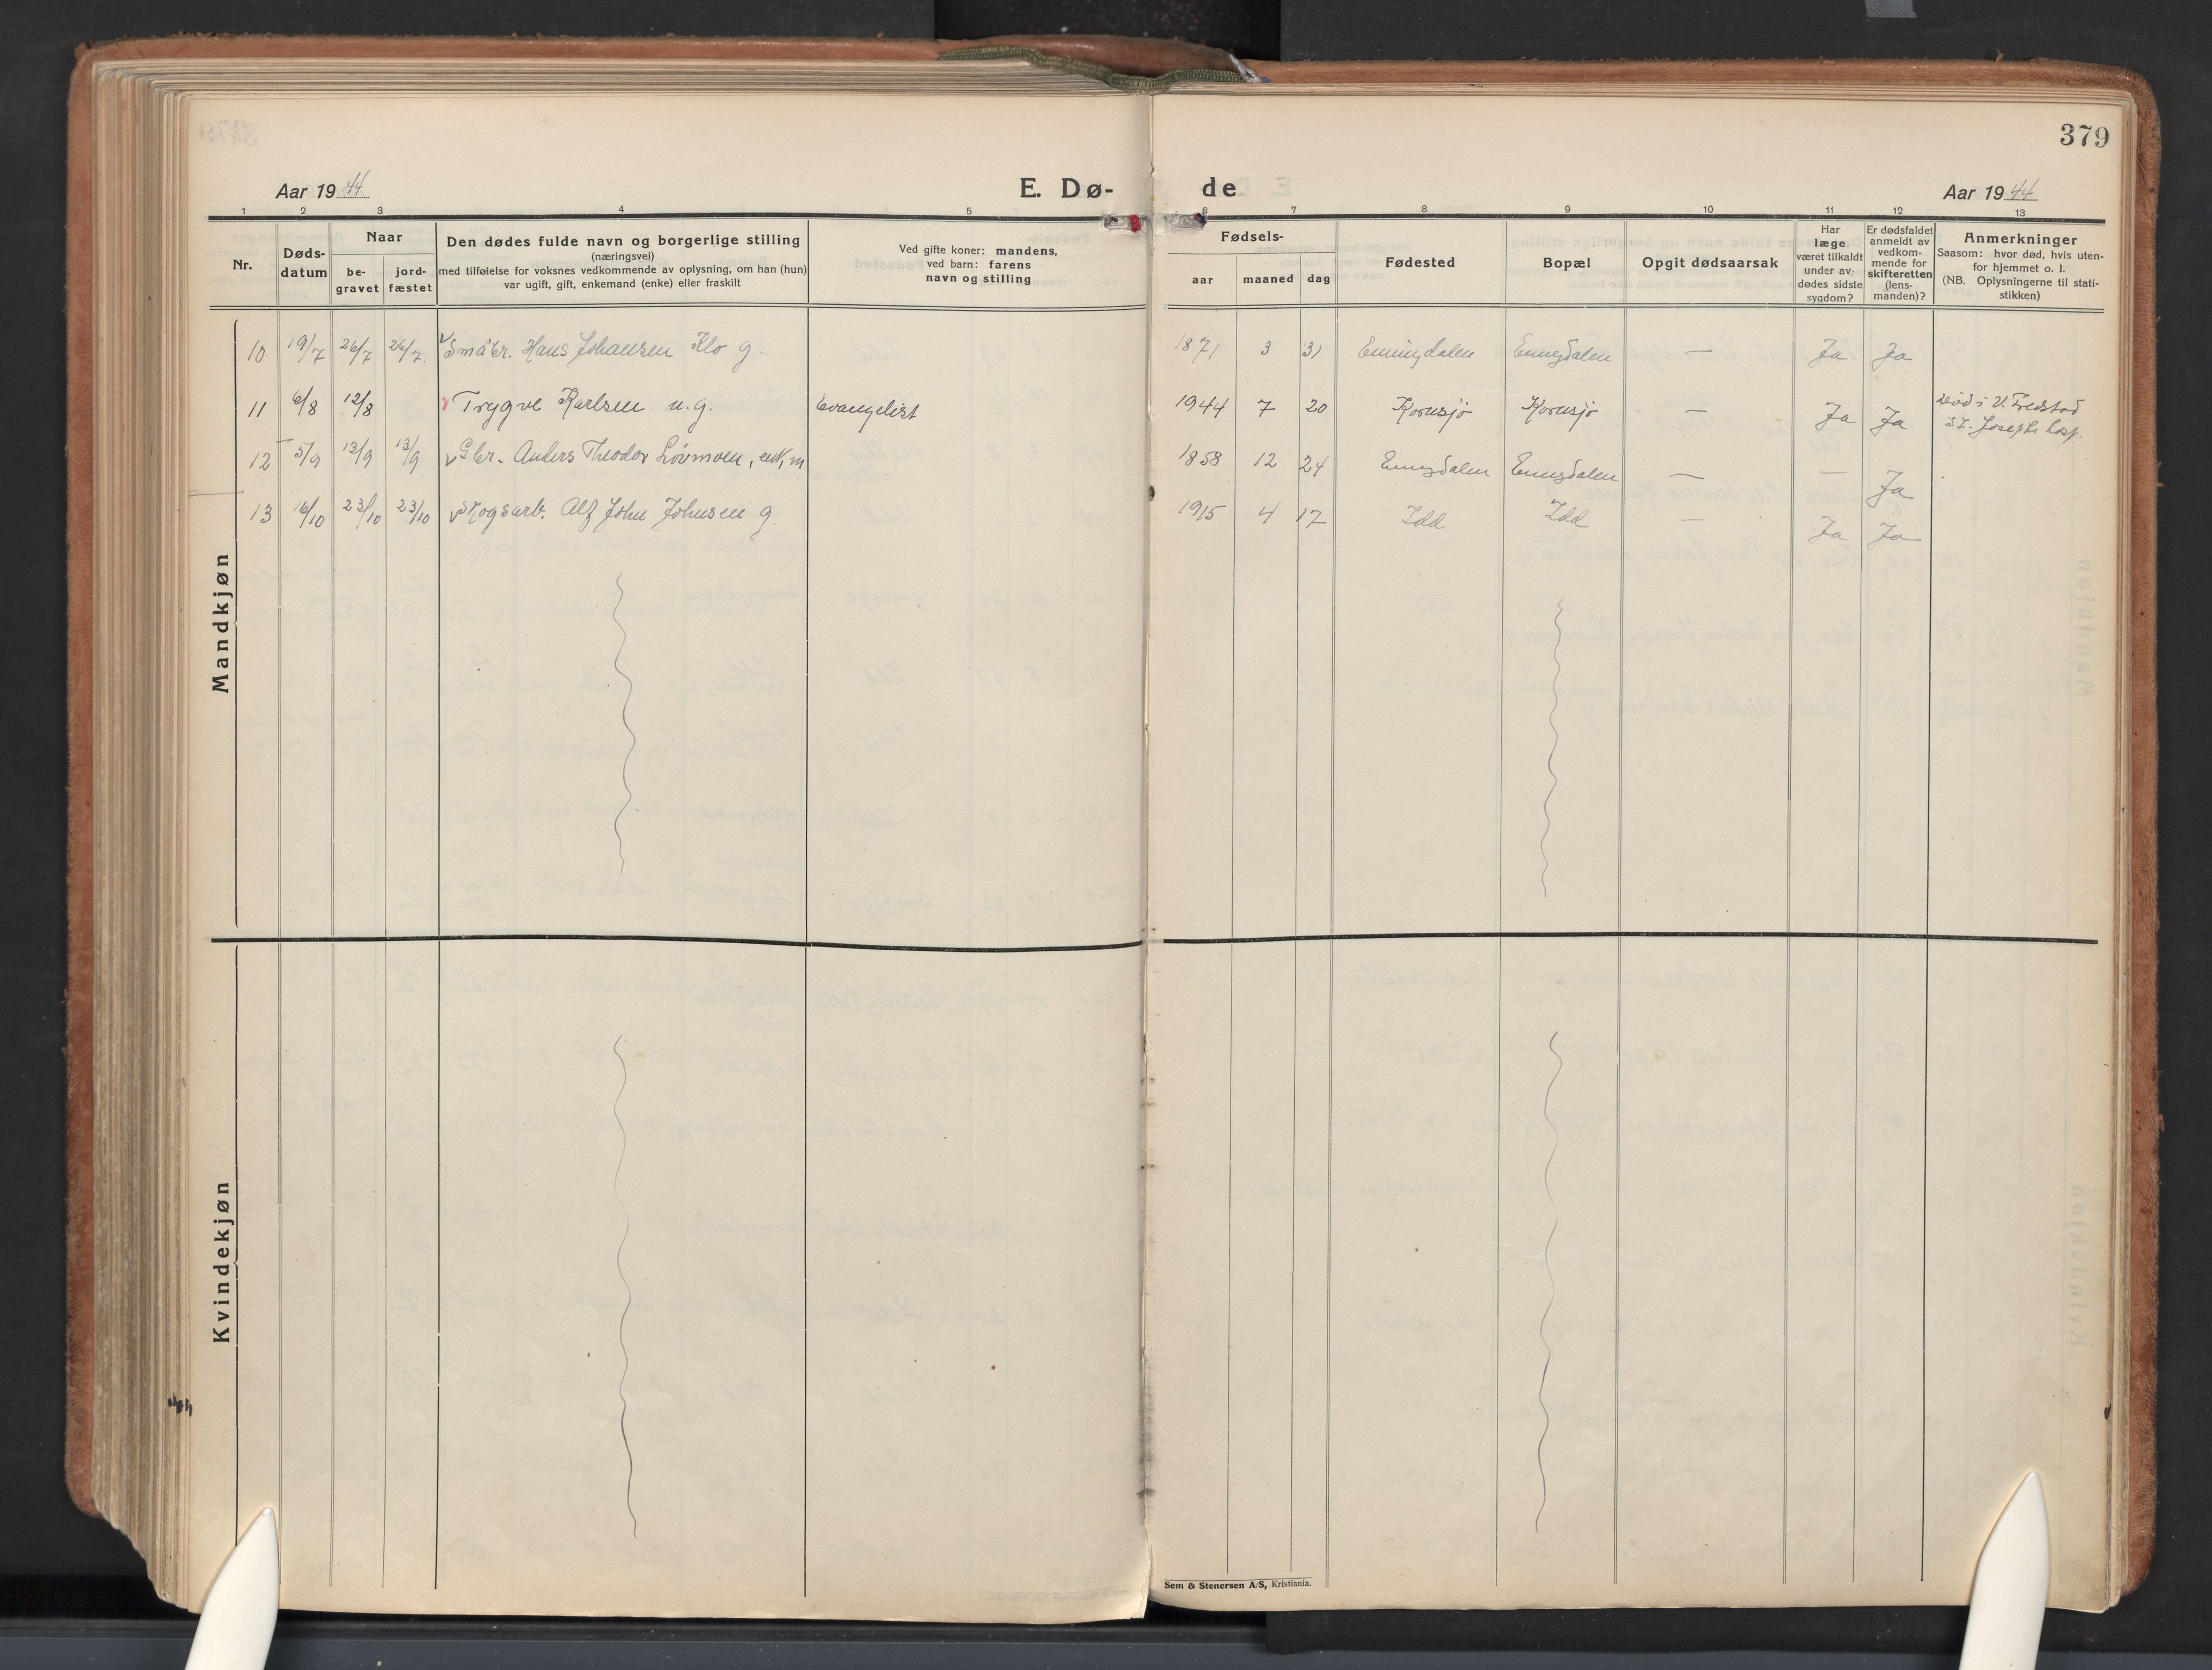 379
Aar 1944 E. Dø- de Aar 1944
1 2 3 4 5 6 7 8 9 10 11 12 13
Nr.
Døds-
datum
Naar
be-
gravet
jord-
fæstet
Den dødes fulde navn og borgerlige stilling
(næringsvei)
med tilføielse for voksnes vedkommende av oplysning, om han (hun)
var ugift, gift, enkemand (enke) eller fraskilt
Ved gifte koner: mandens,
ved barn: farens
navn og stilling
Fødsels-
aar maaned dag
Fødested
Bopæl
Opgit dødsaarsak
Har
læge
været tilkaldt
under av-
dødes sidste
sygdom?
Er dødsfaldet
anmeldt av
vedkom-
mende for
skifteretten
(lens-
manden)?
Anmerkninger
Saasom: hvor død, hvis uten-
for hjemmet o. l.
(NB. Oplysningerne til stati-
stikken)
Mandkjøn
10 19/7 26/7 26/7. Småbr. Hans Johansen Klo g. 1871 3 31 Enningdalen Enngdalen — Ja Ja
11 6/8 12/8 Trygve Karlsen u.g. Evangelist 1944 7 20 Kornsjø Kornsjø — Ja Ja Død i V. Fredstad
St. Josephs hosp.
12 5/9 13/9 13/9 Gbr. Anders Theodor Løvmoen, enk,m 1858 12 24 Enngdalen Enngdalen — — Ja
13 16/10 23/10 23/10 Skogsarb. Alf John Johnsen g 1915 4 17 Idd Idd — Ja Ja
Kvindekjøn
Sem & Stenersen A/S, Kristiania.